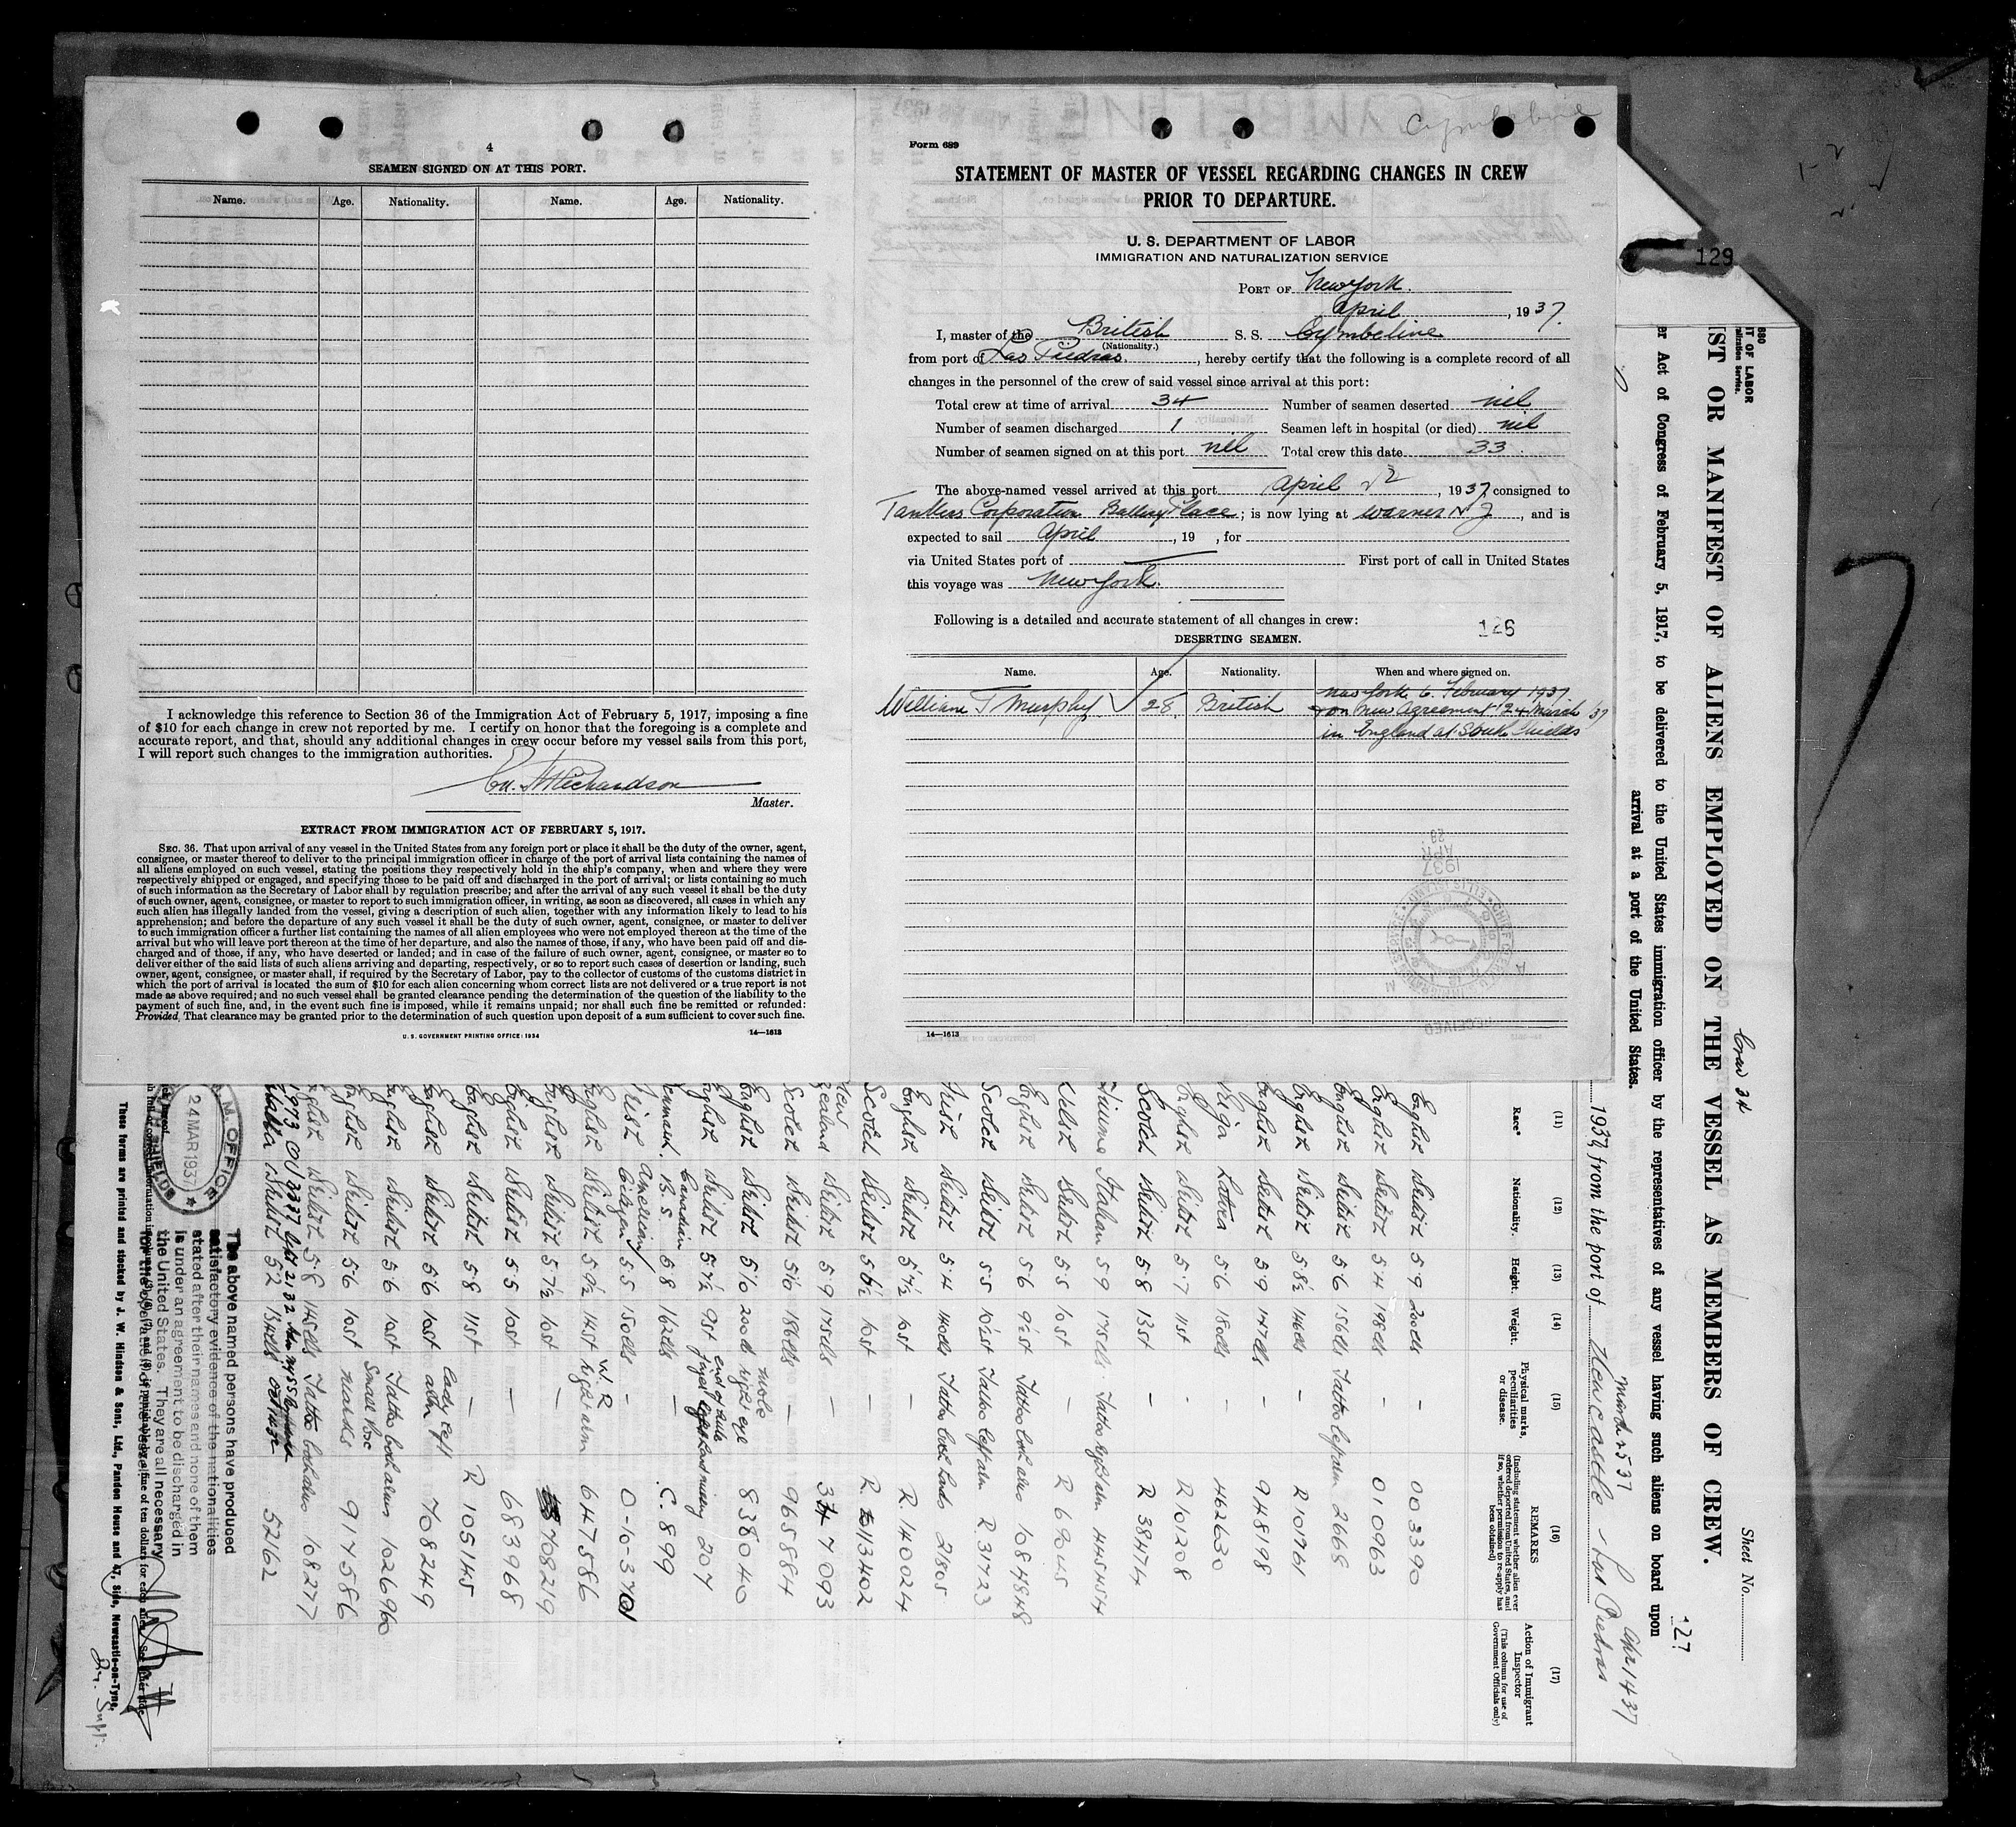 4
SEAMEN SIGNED ON AT THIS PORT.
Name. Age. Nationality. Name. Age. Nationality.
I acknowledge this reference to Section 36 of the Immigration Act of February 5, 1917, imposing a fine
of $10 for each change in crew not reported by me. I certify on honor that the foregoing is a complete and
accurate report, and that, should any additional changes in crew occur before my vessel sails from this port,
I will report such changes to the immigration authorities.
Richardson
Master.
EXTRACT FROM IMMIGRATION ACT OF FEBRUARY 5, 1917.
SEC. 36. That upon arrival of any vessel in the United States from any foreign port or place it shall be the duty of the owner, agent,
consignee, or master thereof to deliver to the principal immigration officer in charge of the port of arrival lists containing the names of
all aliens employed on such vessel, stating the positions they respectively hold in the ship's company, when and where they were
respectively shipped or engaged, and specifying those to be paid off and discharged in the port of arrival; or lists containing so much
of such information as the Secretary of Labor shall by regulation prescribe; and after the arrival of any such vessel it shall be the duty
of such owner, agent, consignee, or master to report to such immigration officer, in writing, as soon as discovered, all cases in which any
such alien has illegally landed from the vessel, giving a description of such alien, together with any information likely to lead to his
apprehension; and before the departure of any such vessel it shall be the duty of such owner, agent, consignee, or master to deliver
to such immigration officer a further list containing the names of all alien employees who were not employed thereon at the time of the
arrival but who will leave port thereon at the time of her departure, and also the names of those, if any, who have been paid off and dis-
charged and of those, if any, who have deserted or landed; and in case of the failure of such owner, agent, consignee, or master so to
deliver either of the said lists of such aliens arriving and departing, respectively, or so to report such cases of desertion or landing, such
owner, agent, consignee, or master shall, if required by the Secretary of Labor, pay to the collector of customs of the customs district in
which the port of arrival is located the sum of $10 for each alien concerning whom correct lists are not delivered or a true report is not
made as above required; and no such vessel shall be granted clearance pending the determination of the question of the liability to the
payment of such fine, and, in the event such fine is imposed, while it remains unpaid; nor shall such fine be remitted or refunded:
Provided, That clearance may be granted prior to the determination of such question upon deposit of a sum sufficient to cover such fine.
U. S. GOVERNMENT PRINTING OFFICE: 1934 14—1613
Cymbeline
Form 689
STATEMENT OF MASTER OF VESSEL REGARDING CHANGES IN CREW
PRIOR TO DEPARTURE.
U. S. DEPARTMENT OF LABOR
IMMIGRATION AND NATURALIZATION SERVICE
PORT OF New York.
April, 1937.
I, master of the British S. S. Cymbeline
(Nationality.)
from port of Las Piedras., hereby certify that the following is a complete record of all
changes in the personnel of the crew of said vessel since arrival at this port:
Total crew at time of arrival 34 Number of seamen deserted nil
Number of seamen discharged 1 Seamen left in hospital (or died) nil
Number of seamen signed on at this port nil Total crew this date 33
The above-named vessel arrived at this port April 22, 1937, consigned to
Tankers Corporation Battery Place; is now lying at Warners N J, and is
expected to sail April, 19 , for
via United States port of First port of call in United States
this voyage was New York.
Following is a detailed and accurate statement of all changes in crew:
126
DESERTING SEAMEN.
Name. Age. Nationality. When and where signed on.
William T Murphy 28 British New York 6 February 1937
on New Agreement 24 March 37
in England at South Shields
14—1613
129
LIST OR MANIFEST OF ALIENS EMPLOYED ON THE VESSEL AS MEMBERS OF CREW.
Crew 34
Sheet No.
127
er Act of Congress of February 5, 1917, to be delivered to the United States immigration officer by the representatives of any vessel having such aliens on board upon
arrival at a port of the United States.
March 25 37 Apr 14 37
1937, from the port of Newcastle - Las Piedras
(11) (12) (13) (14) (15) (16) (17)
Race* Nationality. Height. Weight. Physical marks, peculiarities or disease. REMARKS (Including statement whether alien ever ordered deported from United States, and if so, whether permission to re-apply has been obtained) Action of Immigrant Inspector (This column for use of Government Officials only)
English British 5 9 200 lbs - 003390
English British 5 4 198 lbs - 010963
English British 5 6 156 lbs Tattoo left arm 2668
English British 5 8½ 146 lbs - R 101961
English British 5 9 147 lbs - 948198
Riga Latvia 5 6 180 lbs - 462630
English British 5 7 11 st - R 101208
Scotch British 5 8 13 st - R 38474
Fiume Italian 5 9 175 lbs Tattoo right arm 445454
Welsh British 5 5 10 st - R 69045
English British 5 6 9½ st Tattoo both arms 1084848
Scotch British 5 5 10½ st Tattoo left arm R. 31723
Irish British 5 4 140 lbs Tattoo both hands 21805
English British 5 7½ 10 st - R. 140024
Scotch British 5 6½ 10 st - R. 113402
New Zealand British 5 9 175 lbs - 347093
Scotch British 5 10 186 lbs - 965884
English British 5 10 200 lb mole right eye 838040
English British 5 7½ 9 st 207
Denmark Canadian B. S. 5 8 162 lbs - C. 899
Irish American Citizen 5 5 150 lbs - 0-10-3701
English British 5 9½ 14 st W. R right arm 647586
English British 5 7½ 10 st - 70829
English British 5 5 10 st - 683968
English British 5 8 11 st - R 105145
English British 5 6 10 st Lady left arm 708249
English British 5 6 10 st Tattoo both arms 102696
English British 5 6 10 st Small Pox marks 917586
English British 5 8 145 lbs Tattoo both arms 108277
Malta British 5 2 134 lbs 52162
The above named persons have produced
satisfactory evidence of the nationalities
stated after their names and none of them
is under an agreement to be discharged in
the United States. They are all necessary
for the operation of the vessel.
M. M. OFFICE
24 MAR 1937
SOUTH SHIELDS
These forms are printed and stocked by J. W. Hindson & Sons, Ltd., Pandon House and 47, Side, Newcastle-on-Tyne.